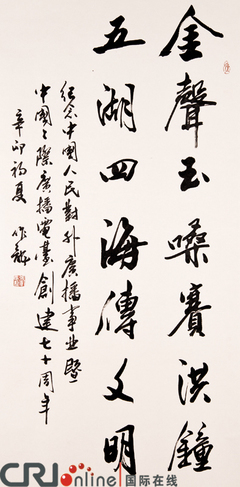 金聲玉嗓賽洪鐘
五湖四海傳文明
纪念中國人民對外广播事业暨
中國々際廣播電臺創建七十周年
辛卯初夏 作
CRI online 国际在线